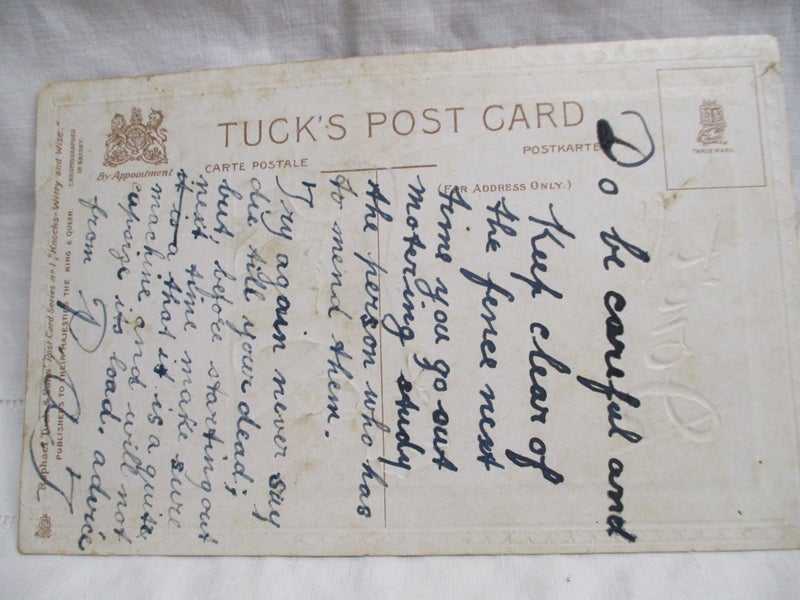 TUCK'S POST CARD
CARTE POSTALE
POSTKARTE
(FOR ADDRESS ONLY.)
By Appointment
TRADE MARK
Raphael Tuck & Sons' Post Card Series No 1, "Knocks-Witty and Wise."
PUBLISHERS TO THEIR MAJESTIES THE KING & QUEEN.
CHROMOGRAPHED
IN SAXONY.
Don't
Do be careful and
Keep clear of
the fence next
time you go out
motoring study
the person who has
to mend them.
Try again never say
die till your dead;
but, before starting out
next time make sure
it is a that it is a quite
machine and will not
capsize its load. advice
from